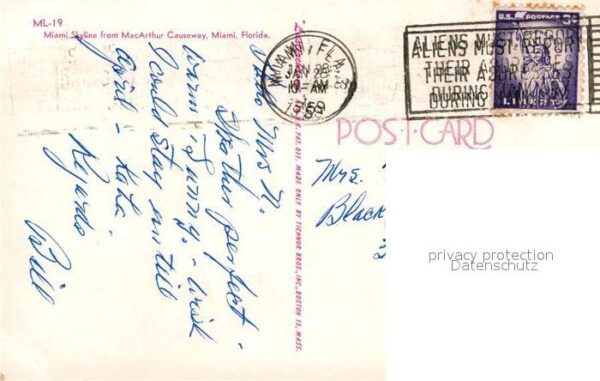 ML-19
Miami Skyline from MacArthur Causeway, Miami, Florida.
Mrs N.
Weather perfect -
warm - Sunny - wish
I could stay until
April - Ha ha.
Regards
Bill
REG. U.S. PAT. OFF. MADE ONLY BY TICHNOR BROS., INC., BOSTON 15, MASS.
MIAMI, FLA.
JAN 28
10 AM
1959
ALIENS MUST REPORT
THEIR ADDRESSES
DURING JANUARY
U.S. POSTAGE 3¢
LIBERTY
POST CARD
Mrs.
Black
privacy protection
Datenschutz